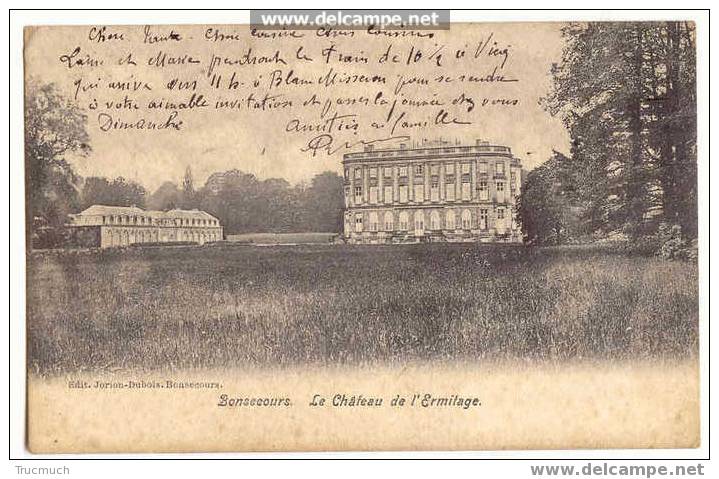 www.delcampe.net
Chère Tante - Chère cousine Chers cousins
et Marie prendront le train de 10 ½ à
qui arrive vers 11 h - à Blanc Misseron pour se rendre
à votre aimable invitation et passer la journée chez vous
Dimanche Amitiés à famille
Edit. Jorion-Dubois. Bonsecours.
Bonsecours. Le Château de l'Ermitage.
Trucmuch
http://www.delcampe.net